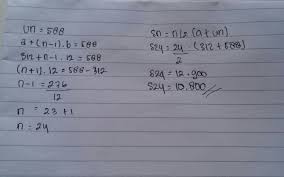 Un = 588
a + (n-1) . b = 588
312 + n-1 . 12 = 588
(n+1) . 12 = 588 - 312
n-1 = 276
12
n = 23 + 1
n = 24
Sn = n/2 (a + Un)
S24 = 24 (312 + 588)
2
S24 = 12 . 900
S24 = 10.800